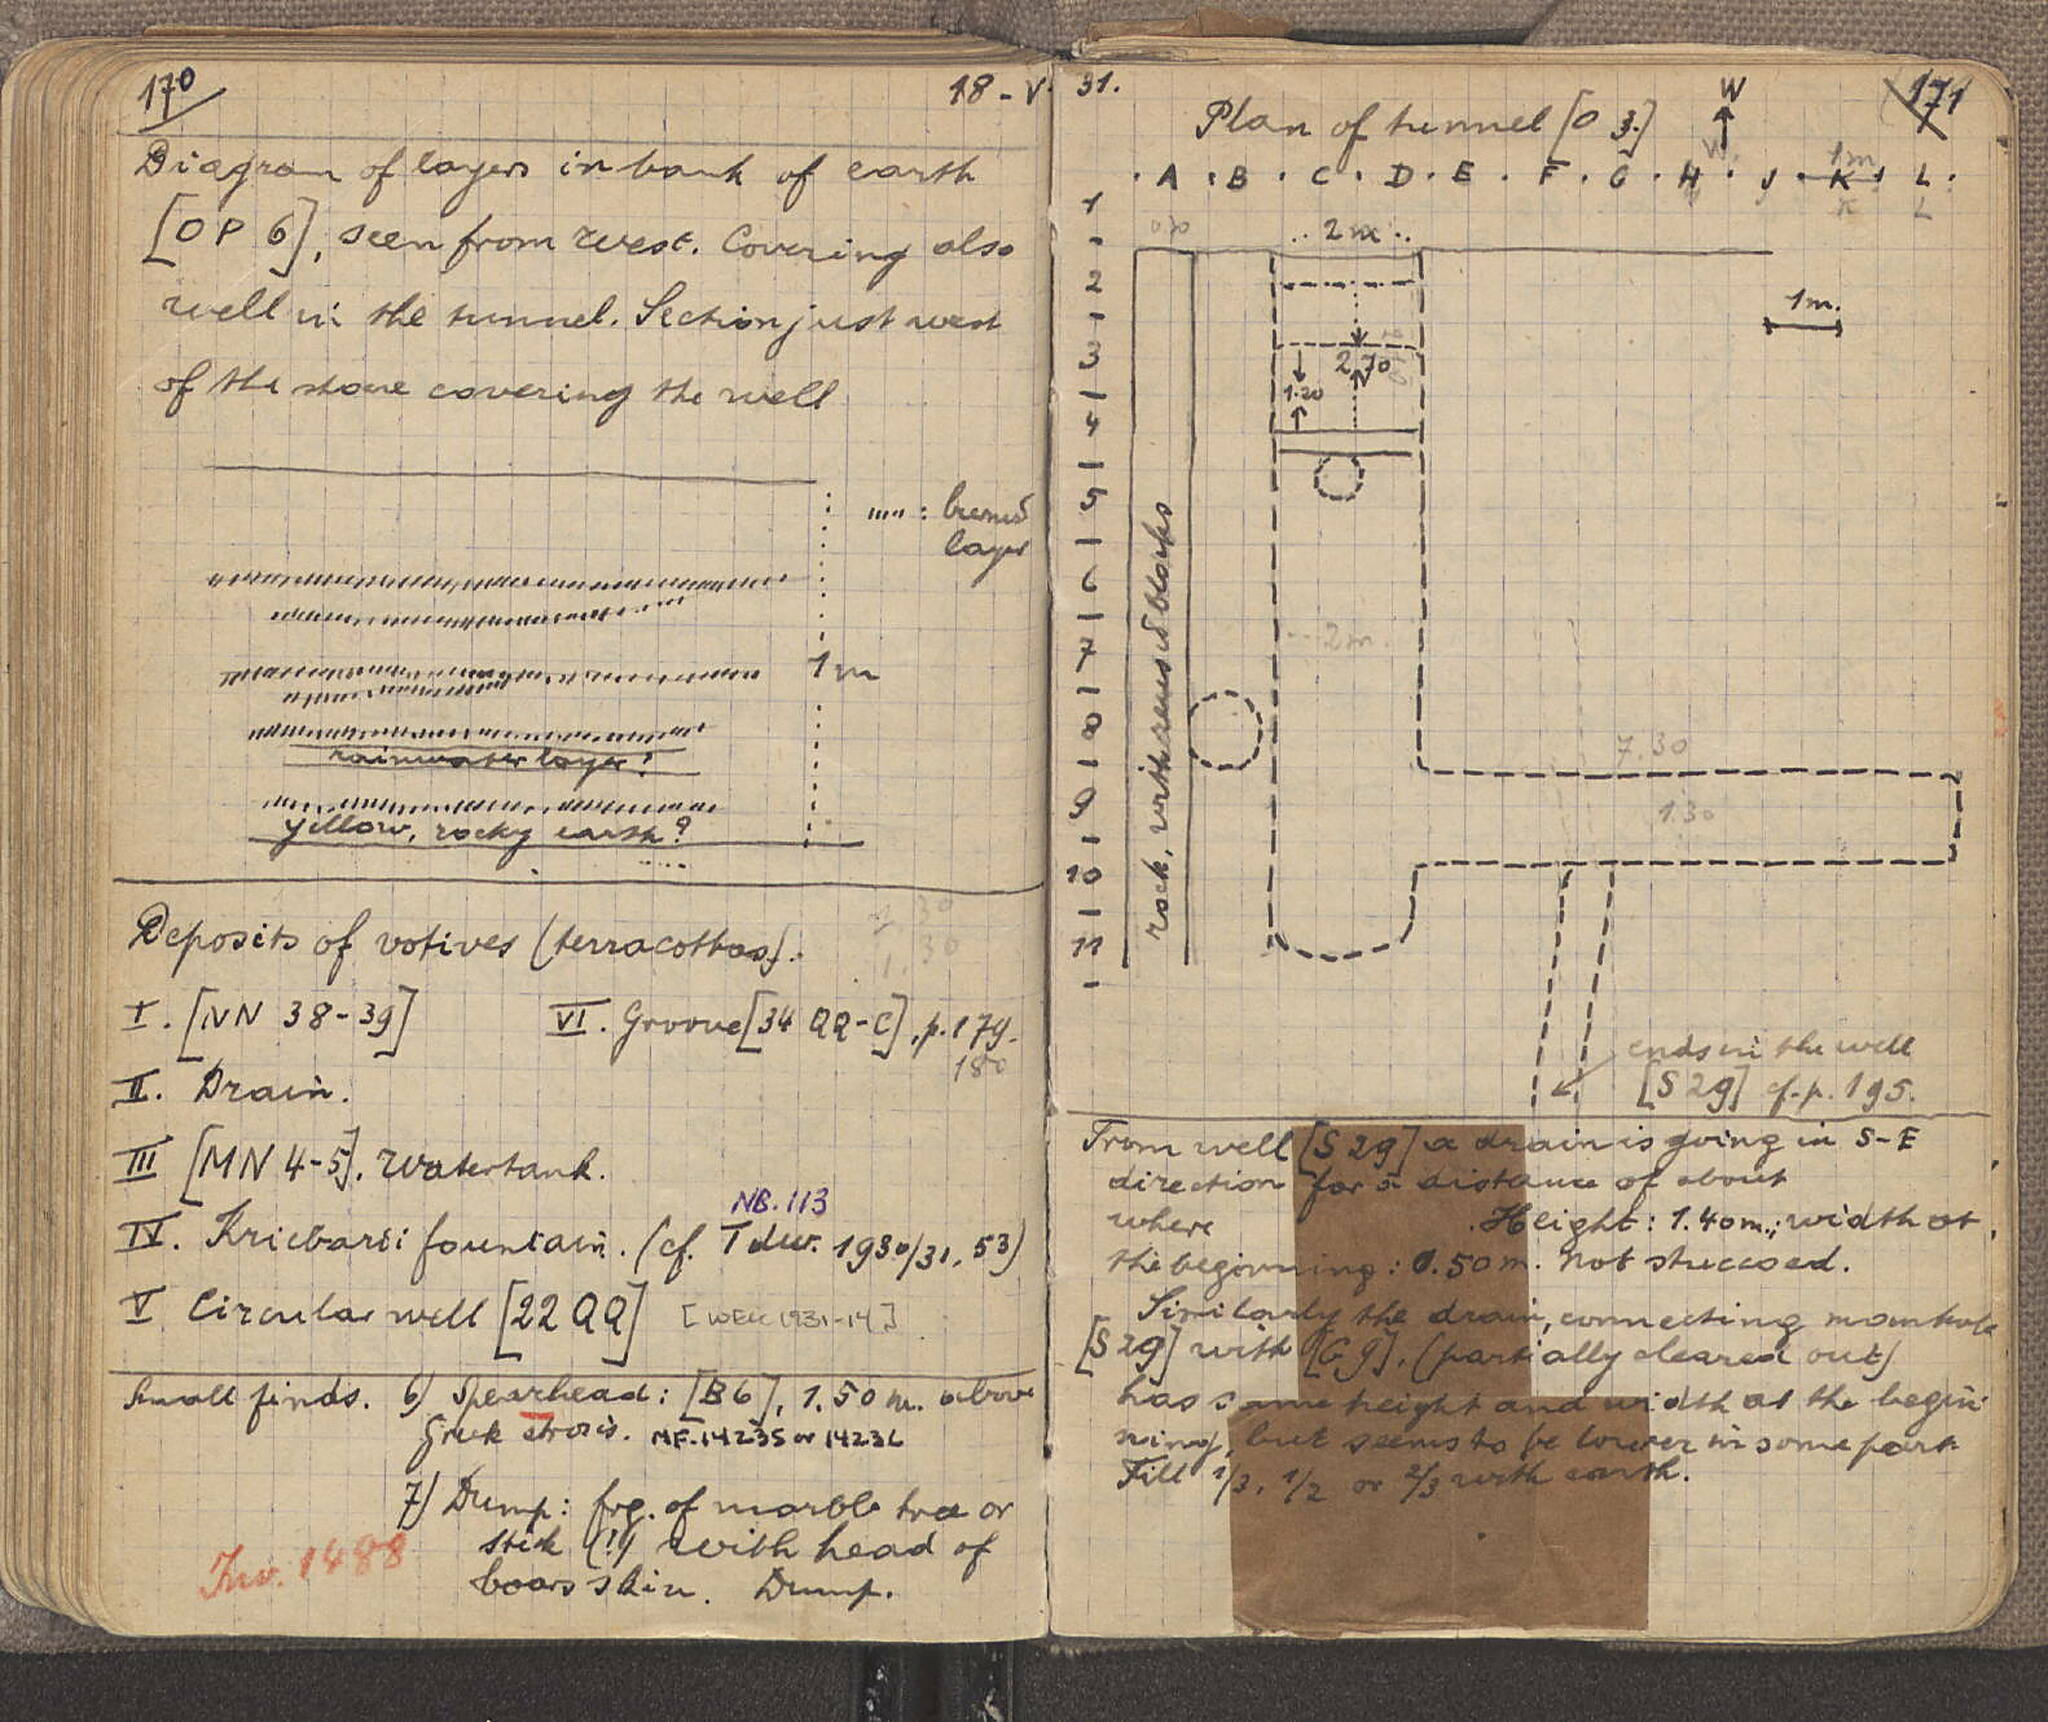 170
18-V
Diagram of layers in bank of earth
[OP 6], seen from west. Covering also
well in the tunnel. Section just west
of the stone covering the well
'''' : burned
layer
1m
rainwater layer!
yellow, rocky earth?
7.30
1.30
Deposits of votives (terracottas).
I. [NN 38-39]
VI. Groove [34 QQ-C], p. 179.
180
II. Drain.
III [MN 4-5]. Watertank.
NB. 113
IV. Kriebardi fountain. (cf. Tdw. 1930/31, 53)
V Circular well [22 QQ] [WELL 1931-14]
Small finds. 6) Spearhead: [B6], 1.50 m. above
Greek strosis. MF. 14235 or 14236
7) Dump: frg. of marble tree or
stick (!) with head of
boars skin. Dump.
Inv. 1488
31.
171
Plan of tunnel [O 3.]
W
W.
1m
· A · B · C · D · E · F · G · H · J · K · L ·
K L
1
2
3
4
5
6
7
8
9
10
11
2m
1m.
2.70
1.20
rock, with reused blocks
2m.
7.30
1.30
ends in the well
[S 29] cf. p. 195.
From well [S 29] a drain is going in S-E
direction for a distance of about
where . Height: 1.40m.; width at
the beginning: 0.50m. Not stuccoed.
Similarly the drain, connecting manhole
[S 29] with [G 9], (partially cleared out)
has same height and width at the begin
ning, but seems to be lower in some part.
Fill 1/3, 1/2 or 2/3 with earth.